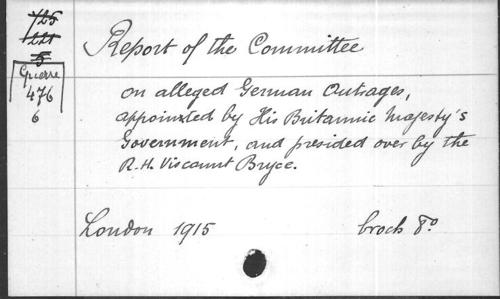 725
221
5
Guerre
476
6
Report of the Committee
on alleged German Outrages,
appointed by His Britannic Majesty's
Government, and presided over by the
R.H. Viscount Bryce.
London 1915 broch 8º